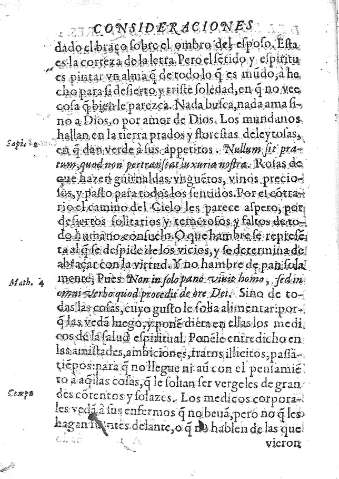 CONSIDERACIONES
dado el braço sobre el ombro del esposo. Esta
es la corteza de la letra. Pero el sẽtido y espiritu
es pintar vn alma q̃ de todo lo q̃ es mũdo, à he
cho para si desierto, y triste soledad, en q̃ no vee
cosa q̃ biẽ le parezca. Nada busca, nada ama si-
no a Dios, o por amor de Dios. Los mundanos
hallan en la tierra prados y florestas deleytosas,
Sapiẽ 2 en q̃ dan verde à sus appetitos. Nullum sit pra
tum, quod non pertranseat luxuria nostra. Rosas de
que hazen guirnaldas, vnguẽtos, vinos precio-
sos, y pasto para todos los sentidos. Por el cõtra
rio el camino del Cielo les parece aspero, por
desiertos solitarios y temerosos y faltos de to-
do humano consuelo. O que hambre se represẽ
ta al q̃ se despide de los vicios, y se determina de
abraçar con la virtud. Y no hambre de pan sola
Math. 4 mente, Pues Non in solo pane viuit homo, sed in
omni verbo quod procedit de ore Dei. Sino de to-
das las cosas, cuyo gusto le solia alimentar: por-
q̃ las vedã luego, y põne dieta en ellas los medi-
cos de la salud espiritual. Ponẽle entredicho en
las amistades, ambiciones, tratos illicitos, passa
tiẽpos: para q̃ no llegue ni aũ con el pensamiẽ
to a aq̃llas cosas, q̃ le solian ser vergeles de gran
des cõtentos y solazes. Los medicos corpora-
les vedã à sus enfermos q̃ no beuã, pero no q̃ les
hagan fuentes delante, o q̃ no hablen de las que
vieron